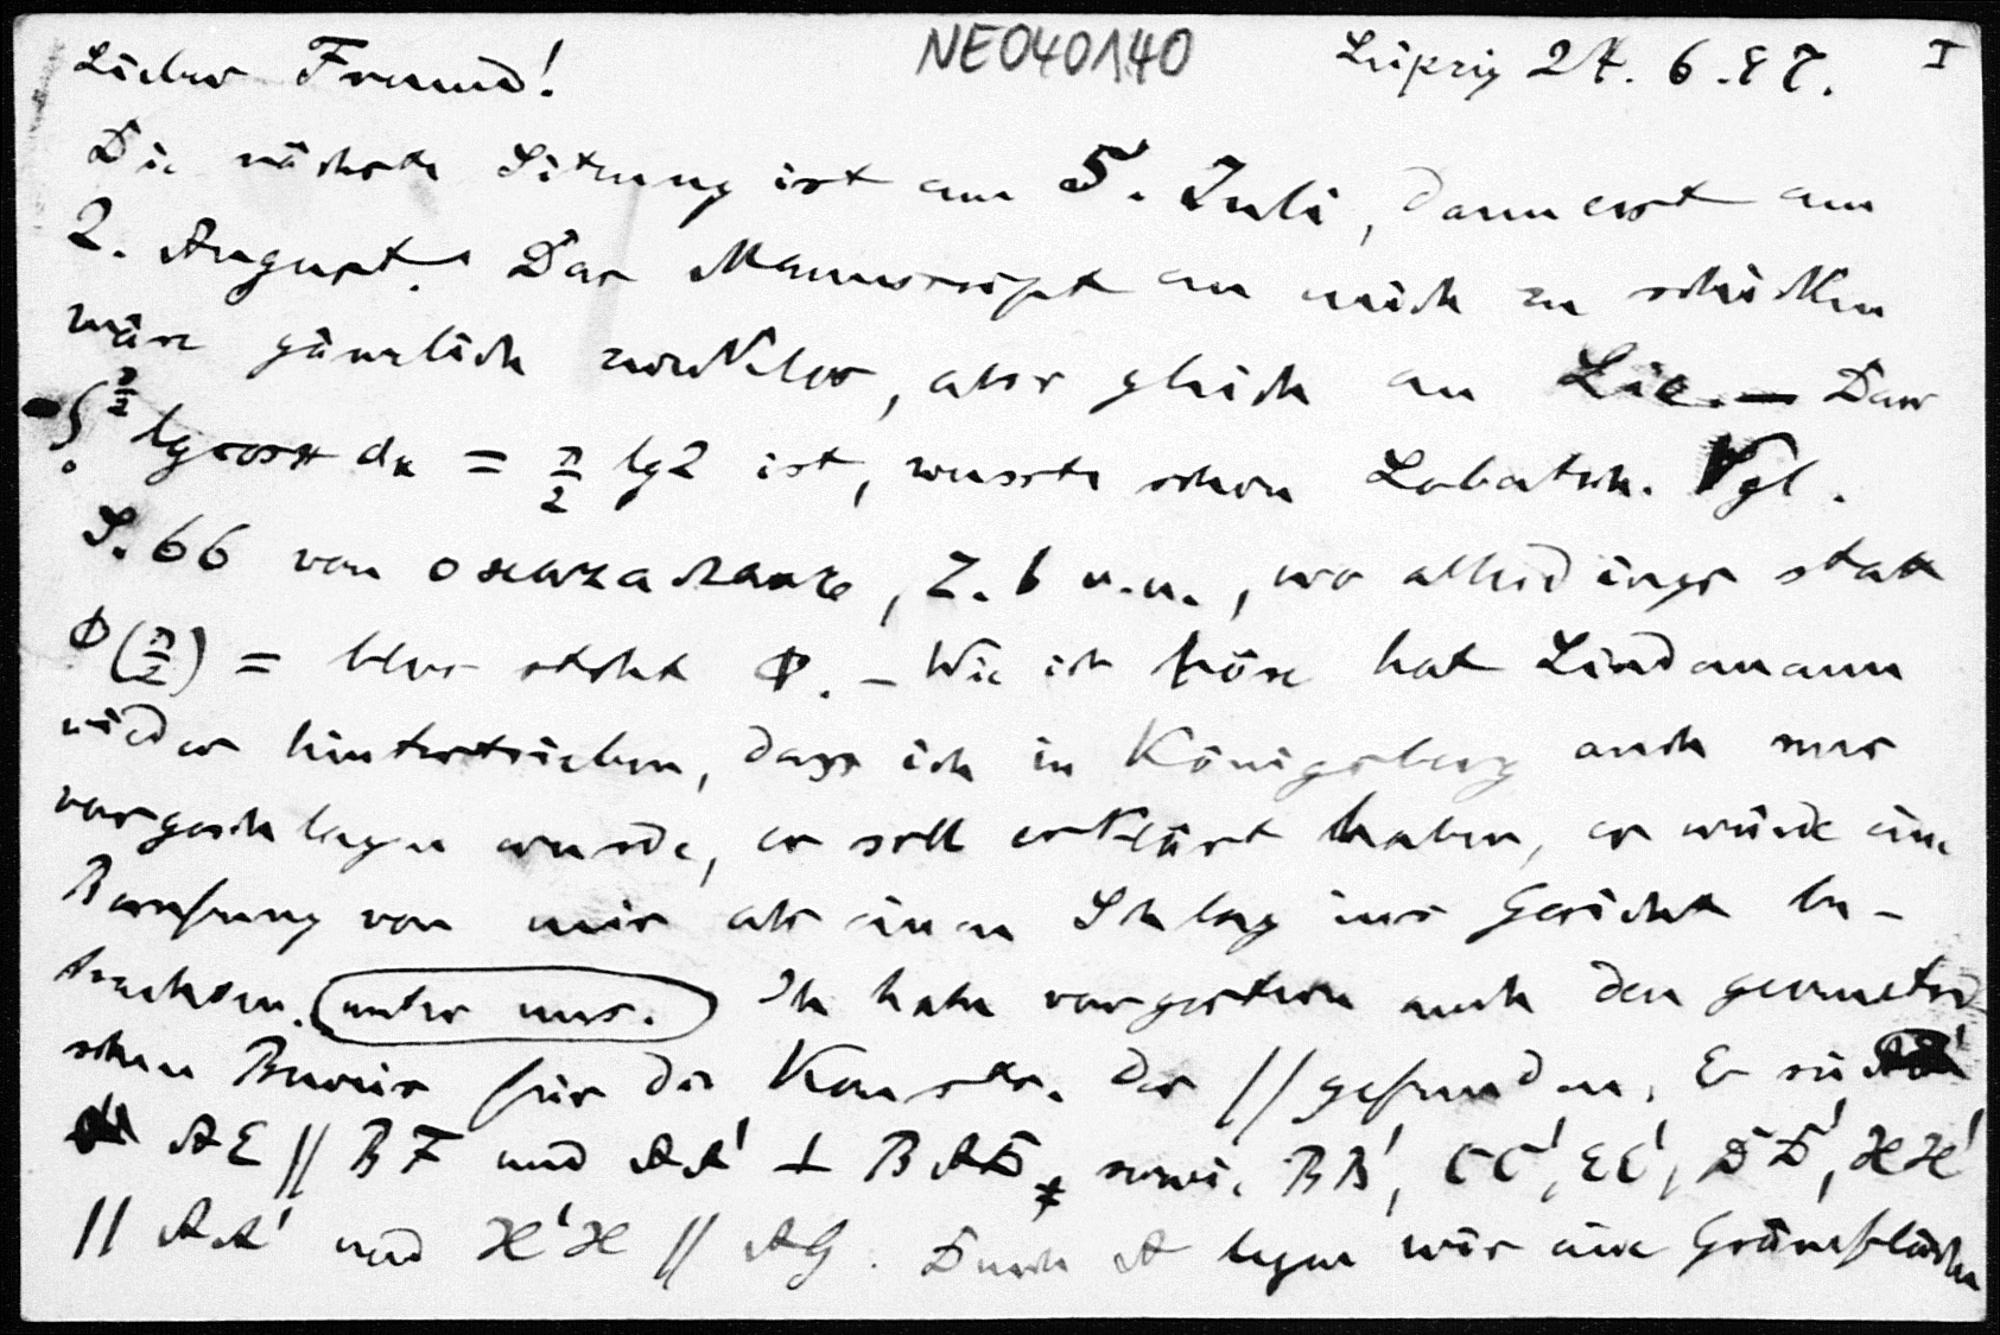 Lieber Freund! NE040140 Leipzig 27. 6. 97. I
Die nächste Sitzung ist am 5. Juli, dann erst am
2. August. Das Manuscript an mich zu schicken
wäre gänzlich zwecklos, aber gleich an Lie. — Dass
-∫₀^{π/2} lg cos x dx = π/2 lg 2 ist, wusste schon Lobatsch. Vgl.
S. 66 von Z. 6 v. u., wo allerdings statt
Φ(π/2) = blos steht Φ. — Wie ich höre hat Lindemann
wieder hintertrieben, dass ich in Königsberg auch nur
vorgeschlagen wurde, er soll erklärt haben, er würde eine
Berufung von mir als einen Schlag ins Gesicht be-
trachten. (unter uns.) Ich habe vorgestern auch den geometri-
schen Beweis für die Konstr. der // gefunden. Es sei
AE // BF und AA' ⊥ BAD, sowie BB', CC', EE', DD', HH'
// AA' und H'H // AG. Durch A legen wir eine Gränzfläche